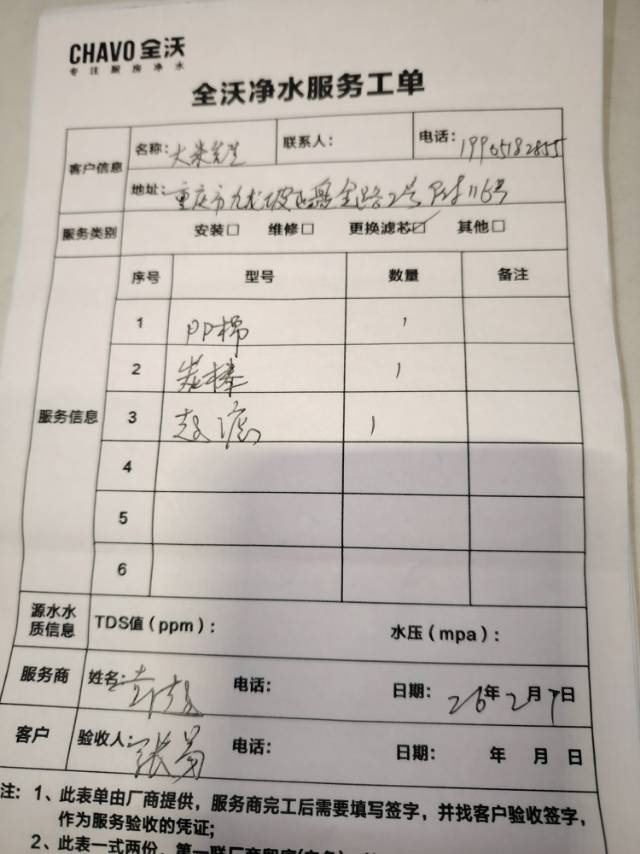 CHAVO 全沃
专注厨房净水
全沃净水服务工单
客户信息 名称：大米先生 联系人： 电话：19905182855
地址：重庆市九龙坡区盘龙路2号 116号
服务类别 安装□ 维修□ 更换滤芯☑ 其他□
服务信息 序号 型号 数量 备注
1 PP棉 1
2 炭棒 1
3 超滤 1
4
5
6
源水水质信息 TDS值（ppm）： 水压（mpa）：
服务商 姓名： 电话： 日期：26年2月7日
客户 验收人：张 电话： 日期： 年 月 日
注：1、此表单由厂商提供，服务商完工后需要填写签字，并找客户验收签字，
作为服务验收的凭证；
2、此表一式两份，第一联厂商留底